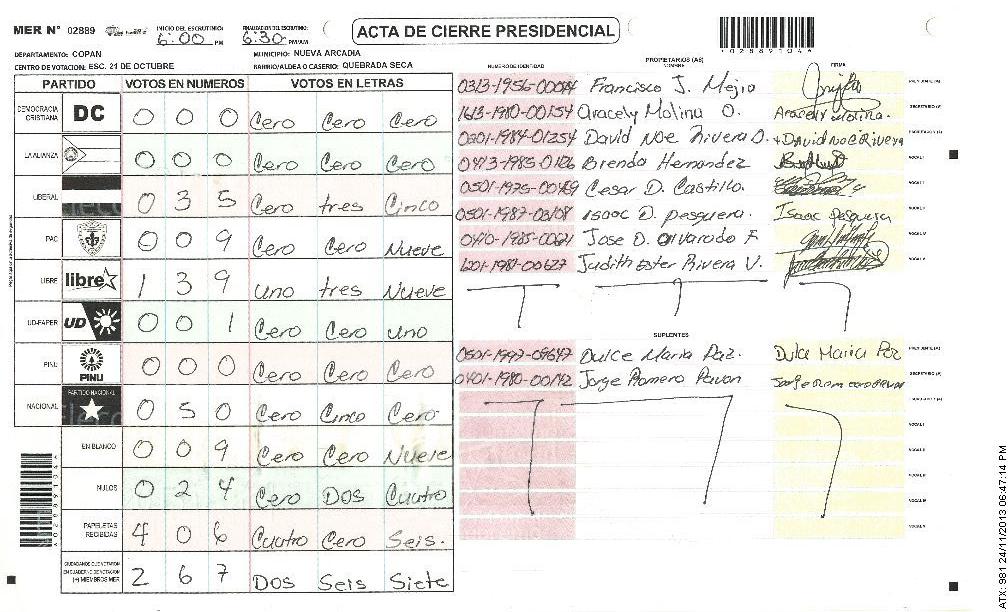 MER Nº 02889 INICIO DEL ESCRUTINIO: 6:00 PM FINALIZACION DEL ESCRUTINIO: 6:30 PM/AM
ACTA DE CIERRE PRESIDENCIAL
DEPARTAMENTO: COPAN MUNICIPIO: NUEVA ARCADIA
CENTRO DE VOTACION: ESC. 21 DE OCTUBRE BARRIO/ALDEA O CASERIO: QUEBRADA SECA
PARTIDO VOTOS EN NUMEROS VOTOS EN LETRAS
DEMOCRACIA CRISTIANA DC 0 0 0 Cero Cero Cero
LA ALIANZA 0 0 0 Cero Cero Cero
LIBERAL 0 3 5 Cero tres Cinco
PAC 0 0 9 Cero Cero Nueve
LIBRE libre 1 3 9 uno tres Nueve
UD-FAPER UD 0 0 1 Cero Cero uno
PINU PINU 0 0 0 Cero Cero Cero
NACIONAL PARTIDO NACIONAL 0 5 0 Cero Cinco Cero
EN BLANCO 0 0 9 Cero Cero Nueve
NULOS 0 2 4 Cero DOS Cuatro
PAPELETAS RECIBIDAS 4 0 6 Cuatro Cero Seis.
CIUDADANOS QUE VOTARON EN CUADERNO DE VOTACION (+) MIEMBROS MER 2 6 7 DOS Seis Siete
PROPIETARIOS (AS)
NUMERO DE IDENTIDAD NOMBRE FIRMA
Francisco J. Mejia PRESIDENTE (A)
1613-1980-00154 Aracely Molina O. Aracely Molina. SECRETARIO (A)
0501-1984-01254 David Noe Rivera O. David Noé Rivera ESCRUTADOR (A)
0413-1985-0126 Brenda Hernandez VOCAL I
Cesar D. Castillo. VOCAL II
isaac D. pesquera. Isaac pesquera
Jose D. alvarado F
1201-1981-00627 Judith Ester Rivera V.
SUPLENTES
0501-1997-09647 Dulce Maria Paz. Dulce Maria Paz PRESIDENTE (A)
0401-1980-00142 Jorge Romero Pavon SECRETARIO (A)
ESCRUTADOR (A)
VOCAL I
VOCAL II
*028891046*
ATX: 981 24/11/2013 06:47:14 PM